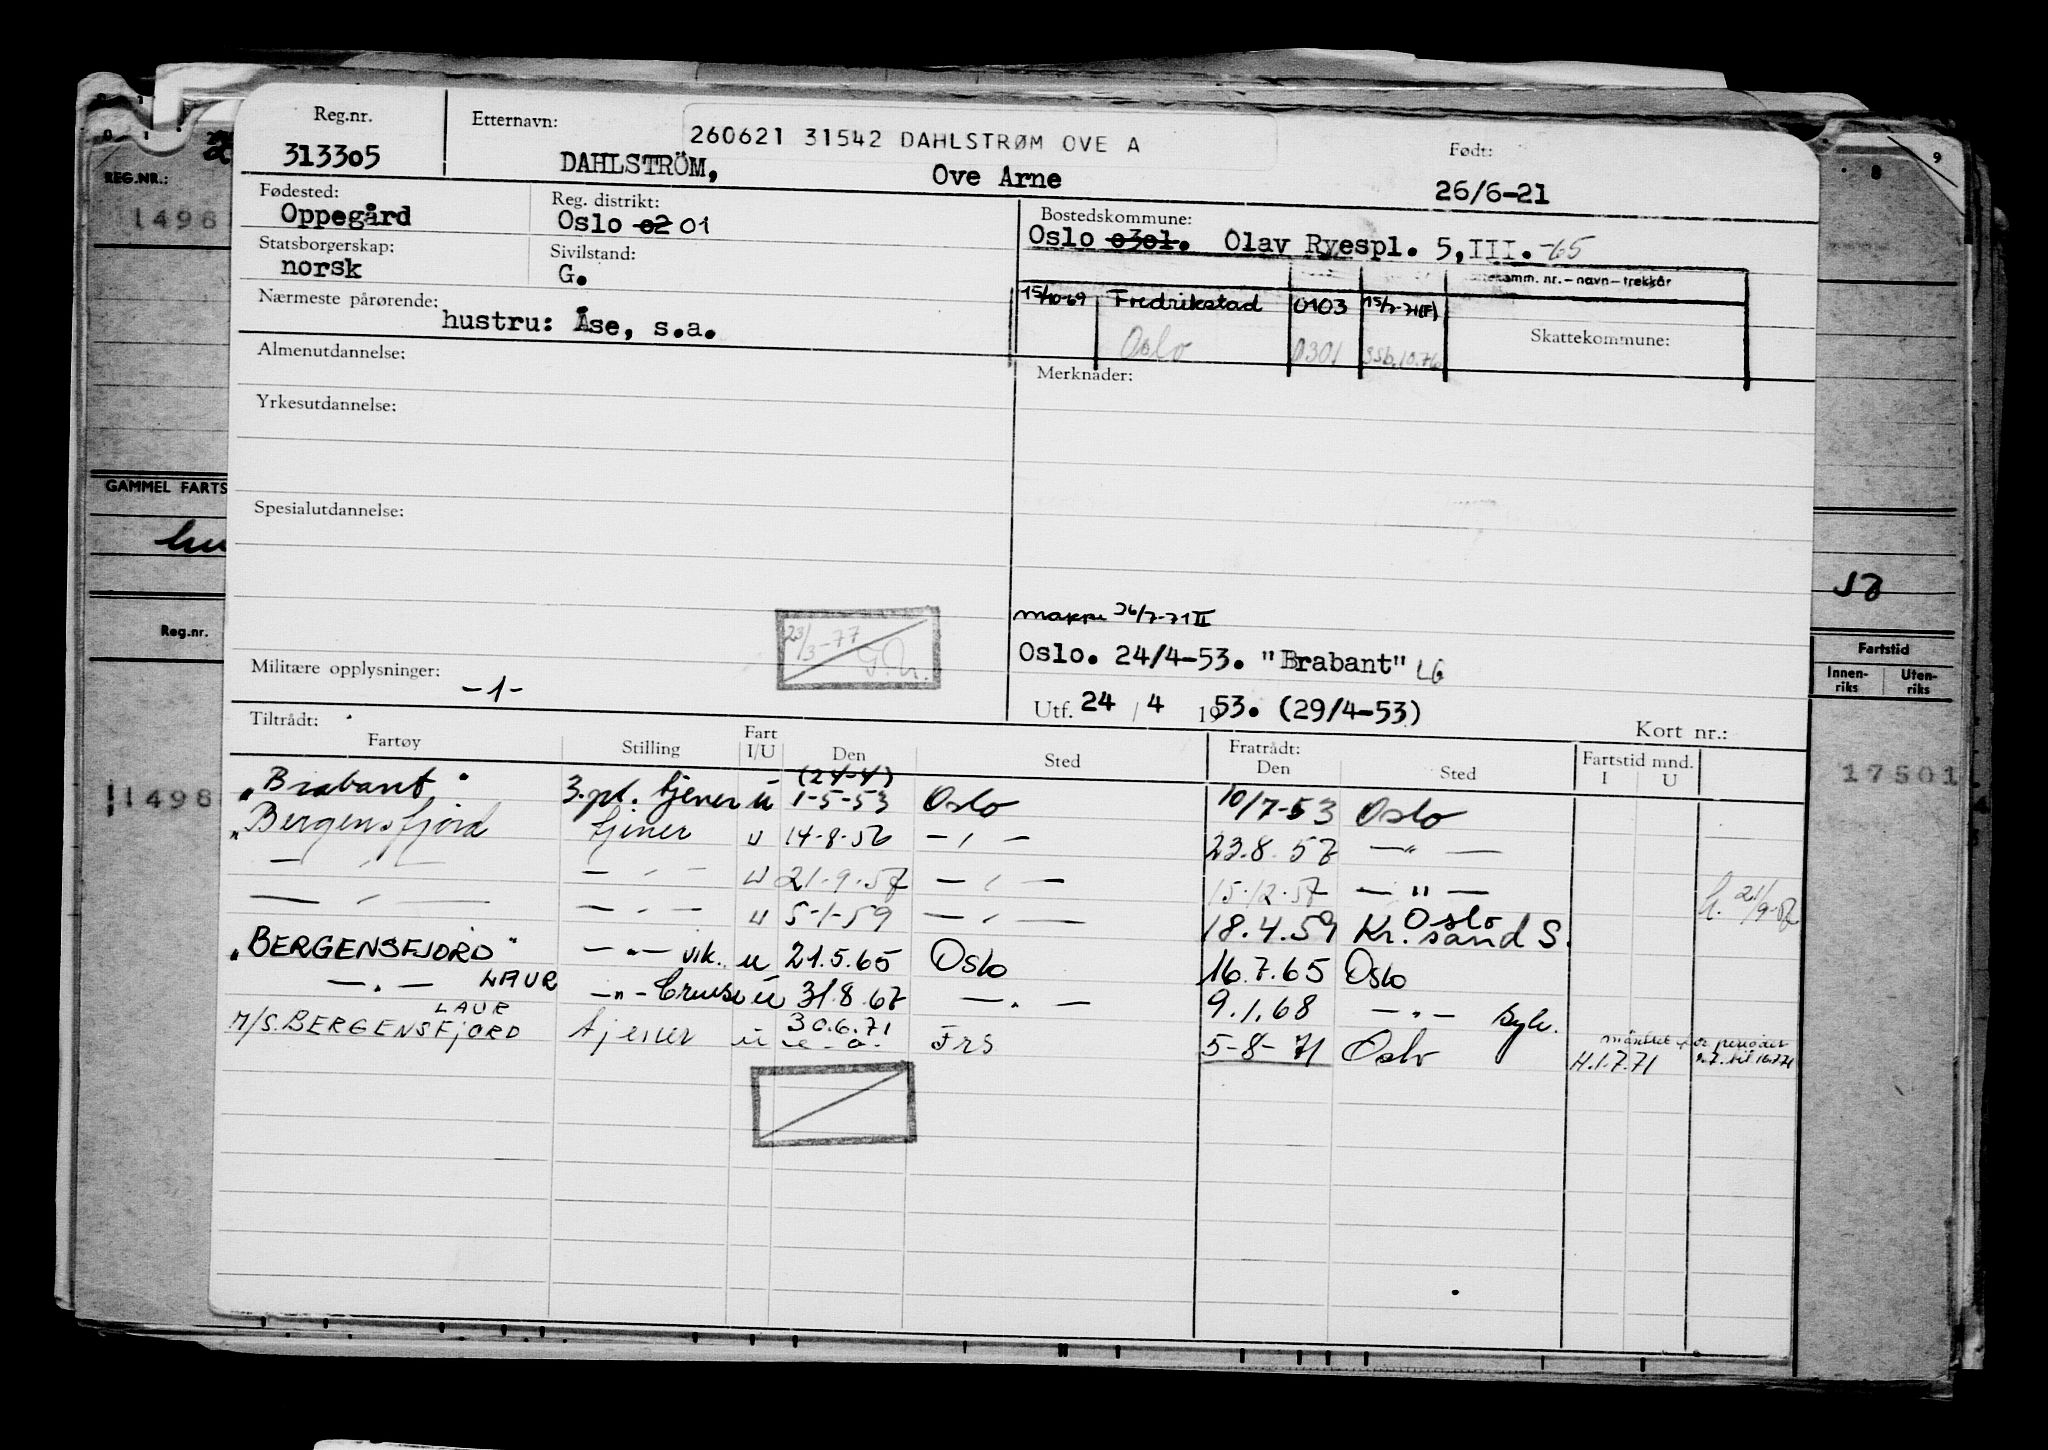 Reg.nr. Etternavn: 260621 31542 DAHLSTRØM OVE A Født:
313305 DAHLSTRÖM, Ove Arne 26/6-21
Fødested: Reg. distrikt: Bostedskommune:
Oppegård Oslo 02 01 Oslo 0301. Olav Ryespl. 5, III. -65
Statsborgerskap: Sivilstand:
norsk G.
komm. nr. – navn – trekkår
Nærmeste pårørende: 15/10-69 Fredrikstad 0103 15/7-71(F)
hustru: Åse, s.a. Skattekommune:
Oslo 0301 SSb. 10.76
Almenutdannelse: Merknader:
Yrkesutdannelse:
Spesialutdannelse:
26/7-71 II
23/3-77
Oslo. 24/4-53. "Brabant" LG
Militære opplysninger: -1-
Utf. 24 / 4 1953. (29/4-53)
Kort nr.:
Tiltrådt: Fratrådt: Fartstid mnd.
Fartøy Stilling Fart I/U Den Sted Den Sted I U
(24-4)
"Brabant" 3.pl. tjener u 1-5-53 Oslo 10/7-53 Oslo
"Bergensfjord tjener u 14-8-56 — " — 23.8.57 — " —
— " — — " — u 21-9-57 — " — 15.12.57 — " — 21/9-57
— " — — " — u 5-1-59 — " — 18.4.59 Oslo Kr.sand S.
"BERGENSFJORD" — " — vik. u 21.5.65 Oslo 16.7.65 Oslo
— " — LAUR — " — Cruise u 31.8.67 — " — 9.1.68 — " —
LAUR
M/S. BERGENSFJORD tjener u 30.6.71 Frs 5-8-71 Oslo H.1.7.71 perioden 2.7. til 16.7.71
REG.NR.:
1498
GAMMEL FARTS
Reg.nr.
1498
9
8
Fartstid
Innen-riks Uten-riks
17501